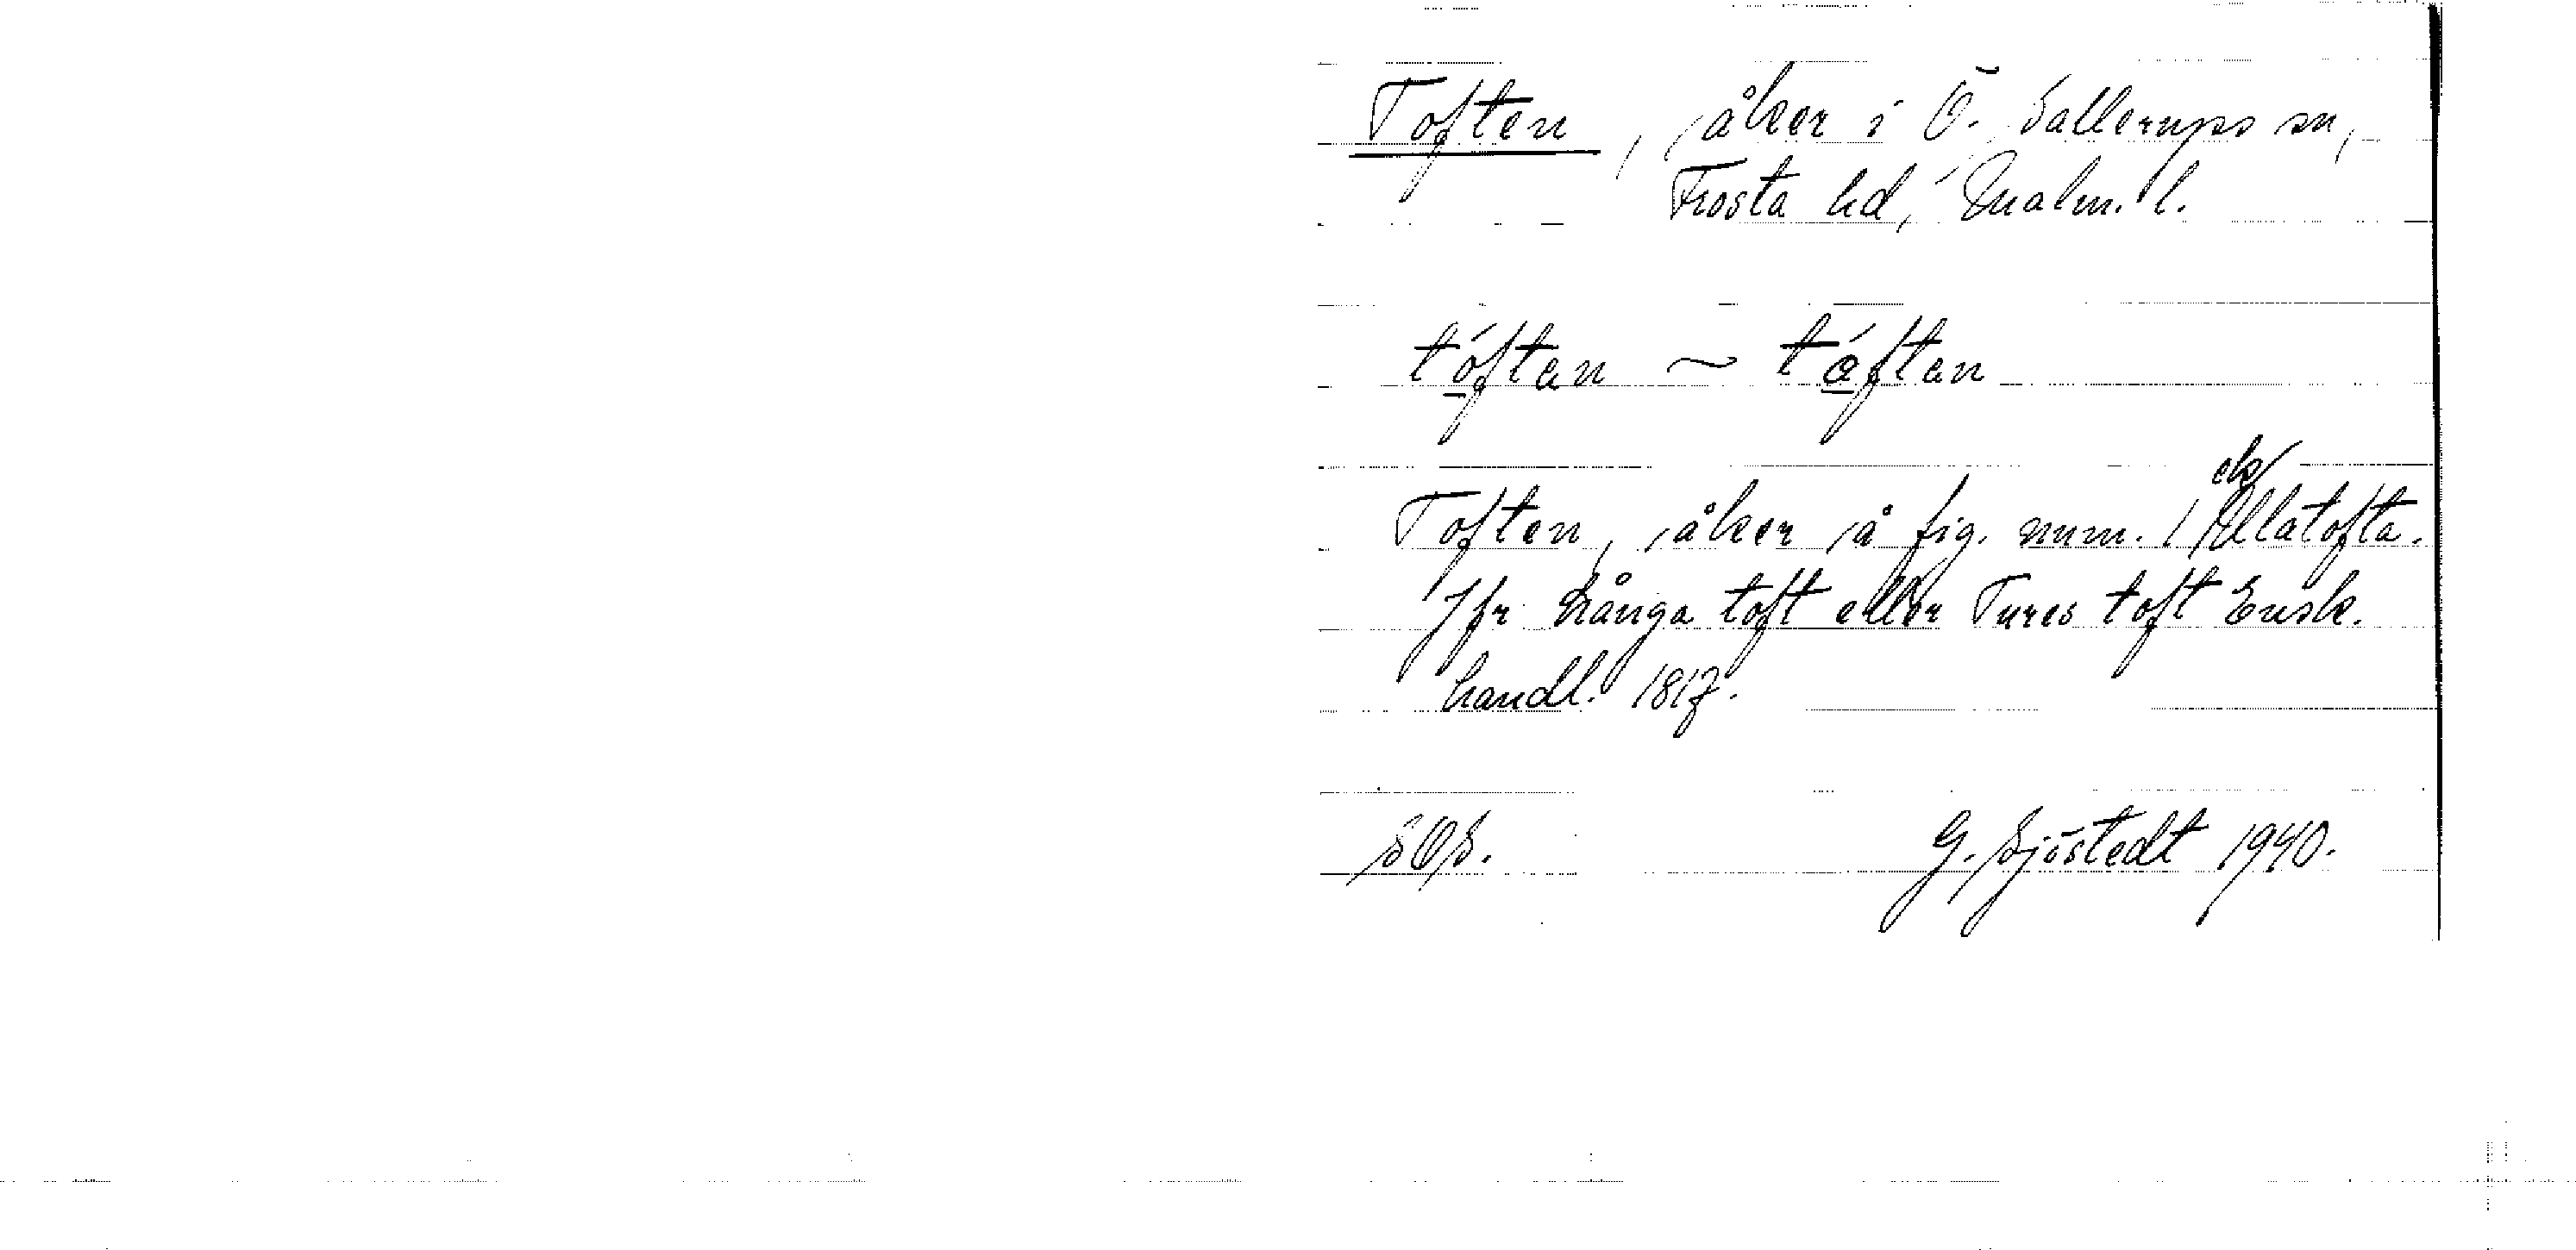 Toften, åker i Ö. Sallerups sn,
Frosta hd, Malm. l.
tóften ~ táften
Toften, åker å fig. num. 1 Ellatofta.
Jfr Långa toft eller Tures toft Ensk.
handl. 1817.
SOS.
G. Sjöstedt 1940.